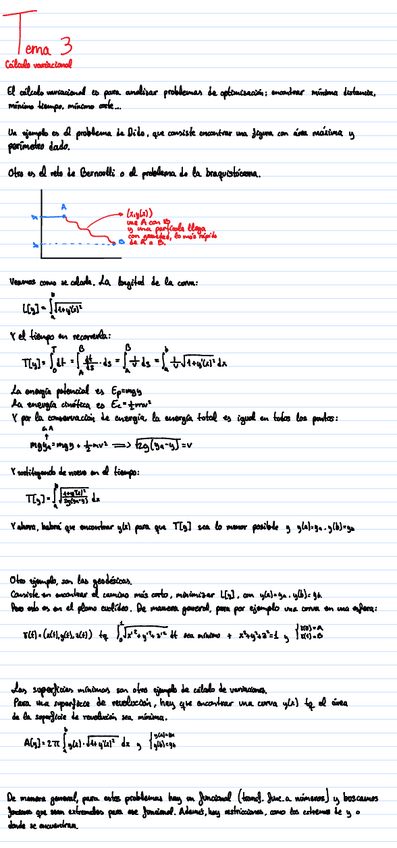 Tema 3
Cálculo variacional
El cálculo variacional es para analizar problemas de optimización; encontrar mínima distancia,
mínimo tiempo, mínimo coste...
Un ejemplo es el problema de Dido, que consiste encontrar una figura con área máxima y
perímetro dado.
Otro es el reto de Bernoulli o el problema de la braquistócrona.
A
(x,y(x))
une A con B
y una partícula llega
con gravedad, lo más rápido
de A a B.
B
Veamos como se calcula. La longitud de la curva:
L[y] = ∫_a^b √(1+y'(x)²)
Y el tiempo en recorrerla:
T[y] = ∫_0^T dt = ∫_A^B dt/ds · ds = ∫_A^B 1/v ds = ∫_a^b 1/v √(1+y'(x)²) dx
La energía potencial es Ep=mgy
La energía cinética es Ec=½mv²
Y por la conservación de energía, la energía total es igual en todos los puntos:
mgy_A = mgy + ½mv² ⟹ √(2g(y_A-y)) = v
Y sustituyendo de nuevo en el tiempo:
T[y] = ∫_a^b √((1+y'(x)²)/(2g(y_A-y))) dx
Y ahora, habrá que encontrar y(x) para que T[y] sea lo menor posible y y(a)=y_A, y(b)=y_B
Otro ejemplo, son las geodésicas.
Consiste en encontrar el camino más corto, minimizar L[y], con y(a)=y_A, y(b)=y_B.
Pero esto es en el plano euclídeo. De manera general, para por ejemplo una curva en una esfera:
γ(t)=(x(t),y(t),z(t)) tq ∫_0^1 √(x'²+y'²+z'²) dt sea mínimo + x²+y²+z²=1 y {γ(0)=A γ(1)=B
Las superficies mínimas son otro ejemplo de cálculo de variaciones.
Para una superficie de revolución, hay que encontrar una curva y(x) tq el área
de la superficie de revolución sea mínima.
A[y] = 2π ∫_a^b y(x)·√(1+y'(x)²) dx y {y(a)=y_A y(b)=y_B
De manera general, para estos problemas hay un funcional (transf. func. a números) y buscamos
funciones que sean extremales para ese funcional. Además, hay restricciones, como los extremos de y o
donde se encuentran.